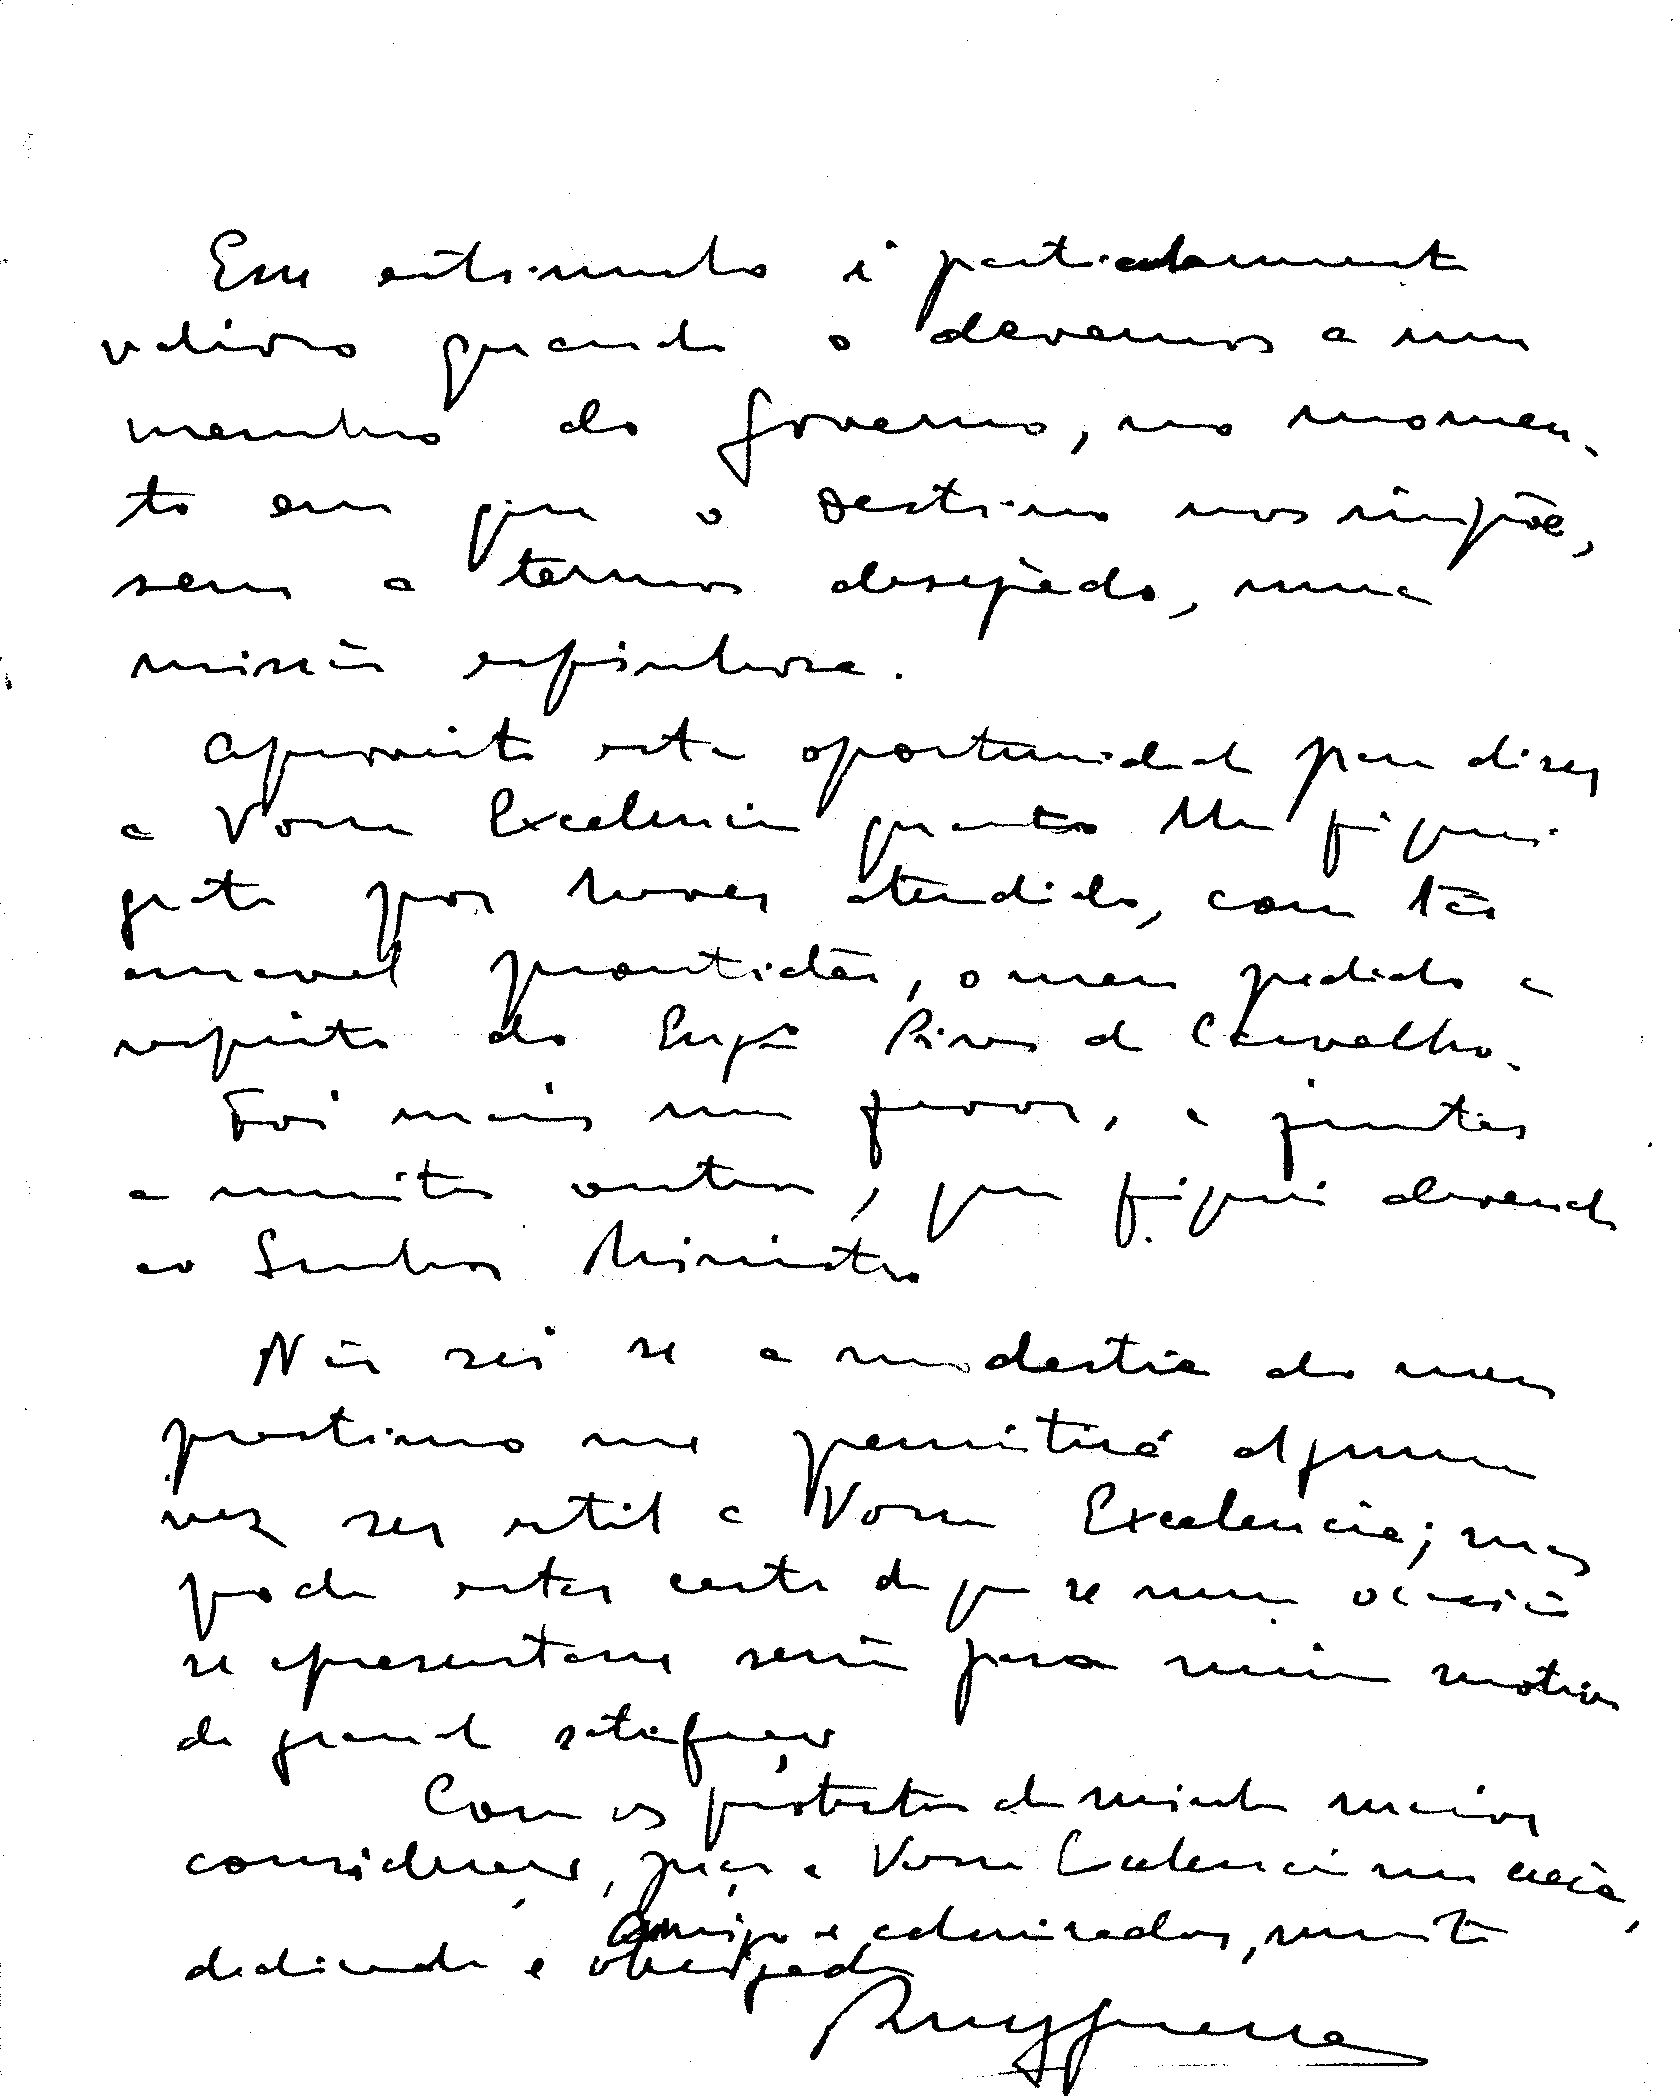 Esse estimulo é particularmente
valioso quando o devemos a um
membro do Governo, no momen-
to em que o Destino nos impõe,
sem a termos desejado, uma
missão espinhosa.
Aproveito esta oportunidade para dizer
a Vossa Excelencia quanto lhe fiquei
grato por haver atendido, com tão
amavel prontidão, o meu pedido a
respeito do Engº Pires de Carvalho.
Foi mais um favor, a juntar
a muitos outros, que fiquei devendo
ao Senhor Ministro
Não sei se a modestia do meu
prestimo me permitirá alguma
vez ser util a Vossa Excelencia; mas
pode estar certo de que se uma ocasião
se apresentasse seria para mim motivo
de grande satisfação
Com os protestos da minha maior
consideração, peço a Vossa Excelencia me creia,
amigo e admirador, muito
dedicado e obrigado
Ruy Guerra